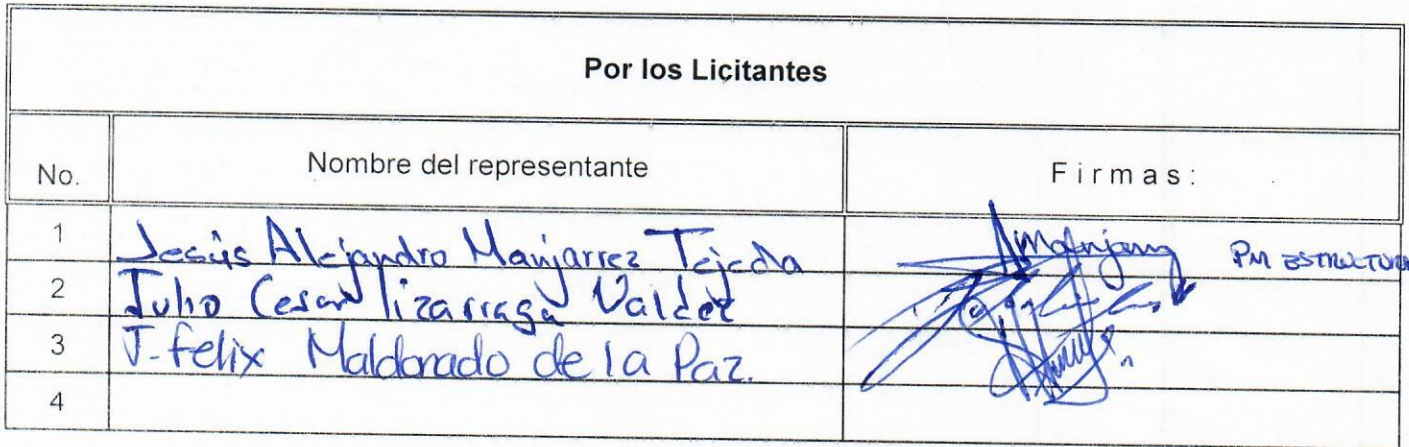 Por los Licitantes
No. Nombre del representante Firmas:
1 Jesús Alejandro Manjarrez Tejeda PM ESTRUCTURA
2 Julio Cesar lizarraga Valdez
3 J. felix Maldonado de la Paz.
4